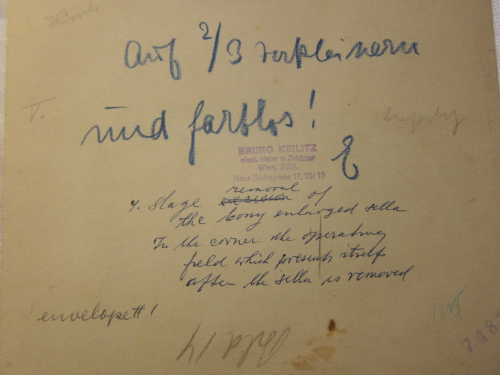 Hirsch
Auf 2/3 verkleinern
V.
und farblos!
BRUNO KEILITZ
akad. Maler u. Zeichner
Wien, XVIII.
17, Tür 15
4. Stage removal excision of
the bony enlarged sella
In the corner the operating
field which presents itself
after the sella is removed
envelopett!
Bild 14
748